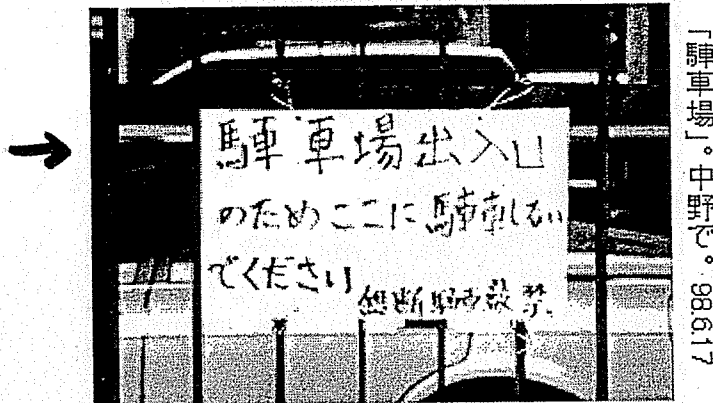 ⿰馬車車場出入口
のためここに⿰馬車車しない
でください
無断⿰馬車車厳禁
「⿰馬車車場」。中野で。98.6.17